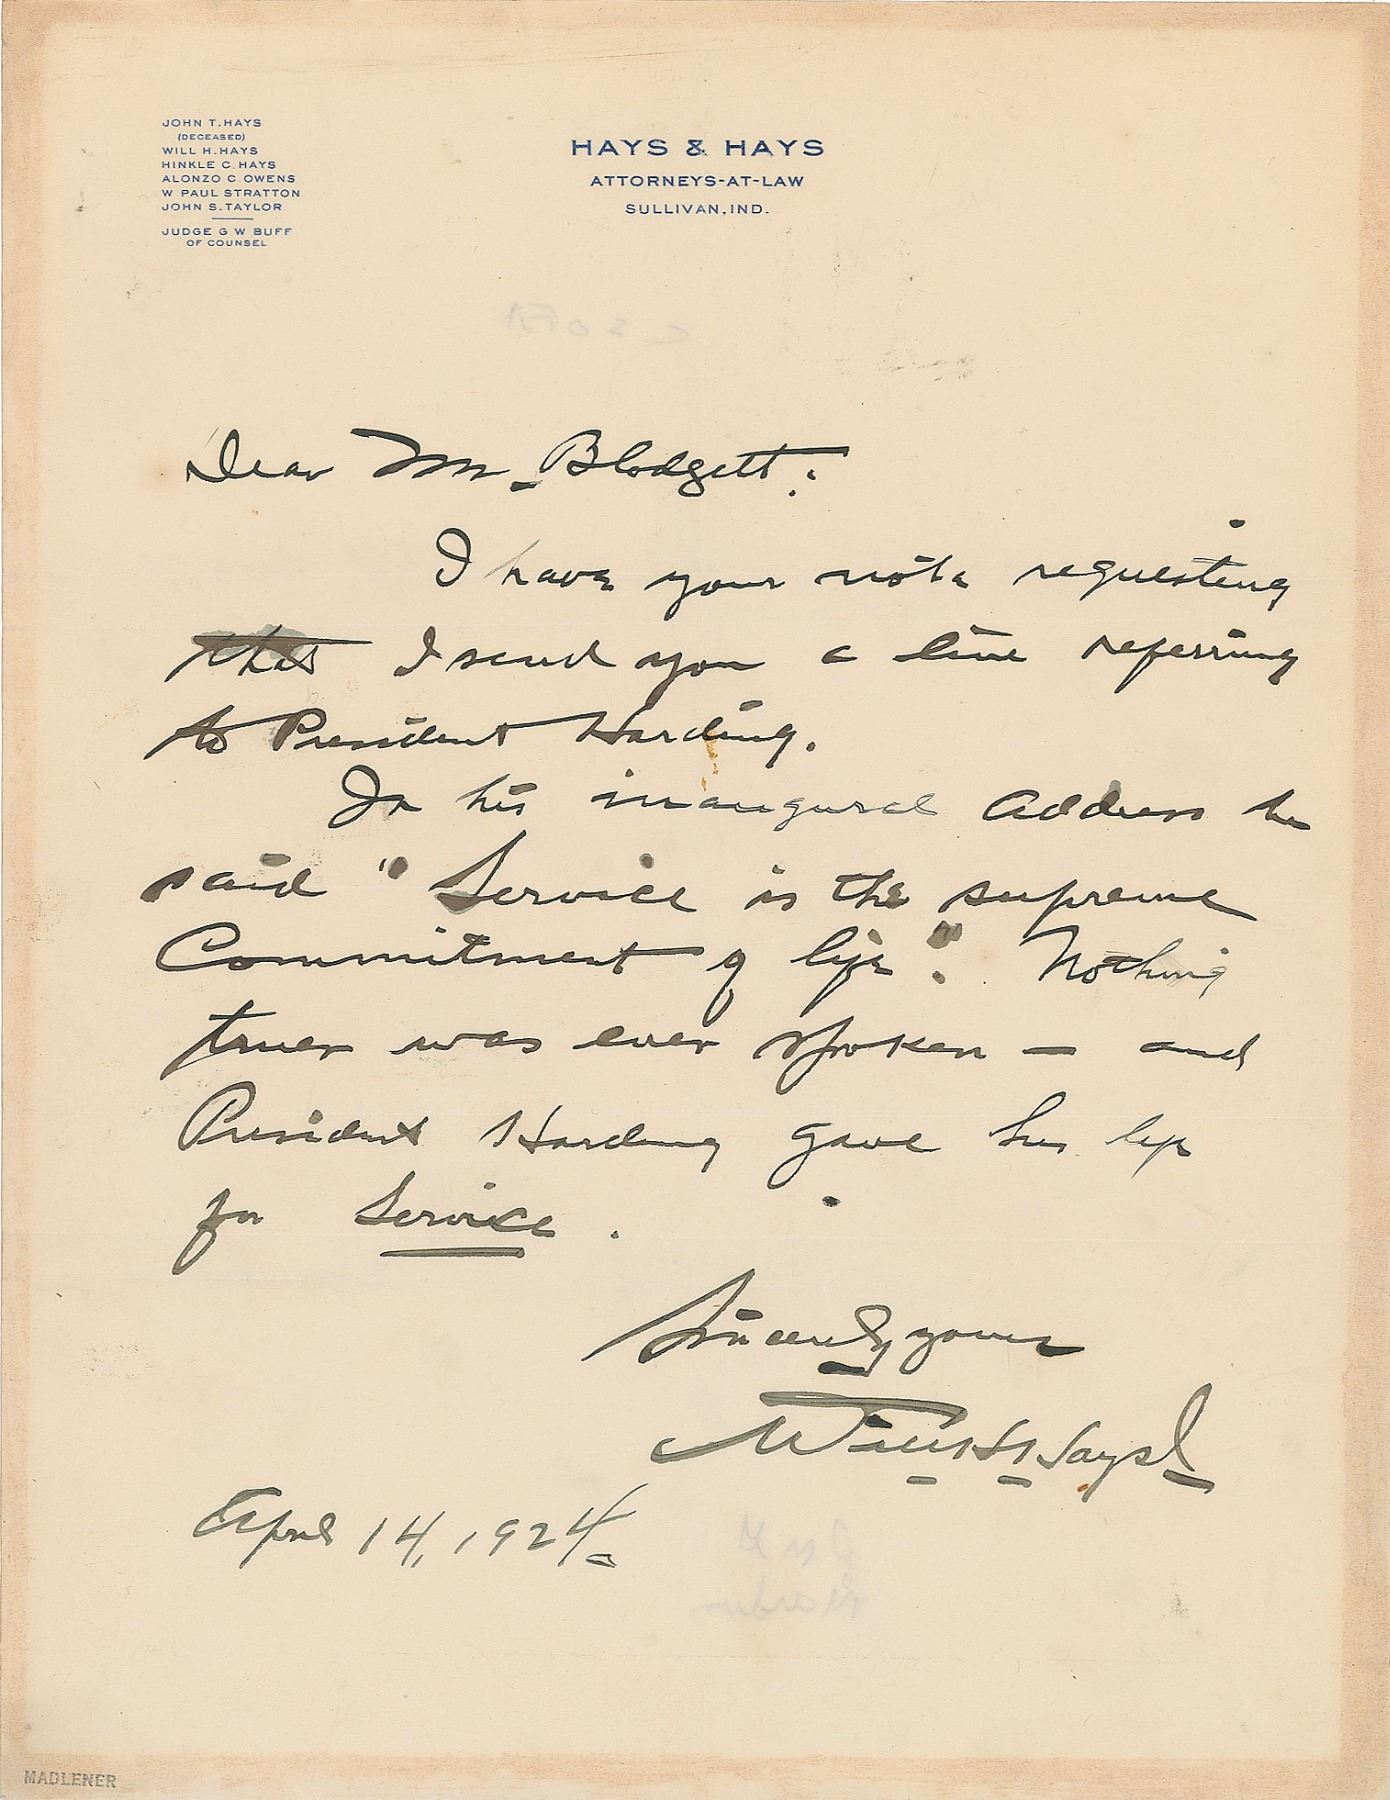 JOHN T. HAYS
(DECEASED)
WILL H. HAYS
HINKLE C. HAYS
ALONZO C. OWENS
W PAUL STRATTON
JOHN S. TAYLOR
JUDGE G W BUFF
OF COUNSEL
HAYS & HAYS
ATTORNEYS-AT-LAW
SULLIVAN, IND.
Dear Mr. Blodgett:
I have your note requesting
that I send you a line referring
to President Harding.
In his inaugural address he
said "Service is the supreme
Commitment of life". Nothing
truer was ever spoken — and
President Harding gave his life
for Service.
Sincerely yours
Will H. Hays
April 14, 1924.
MADLENER